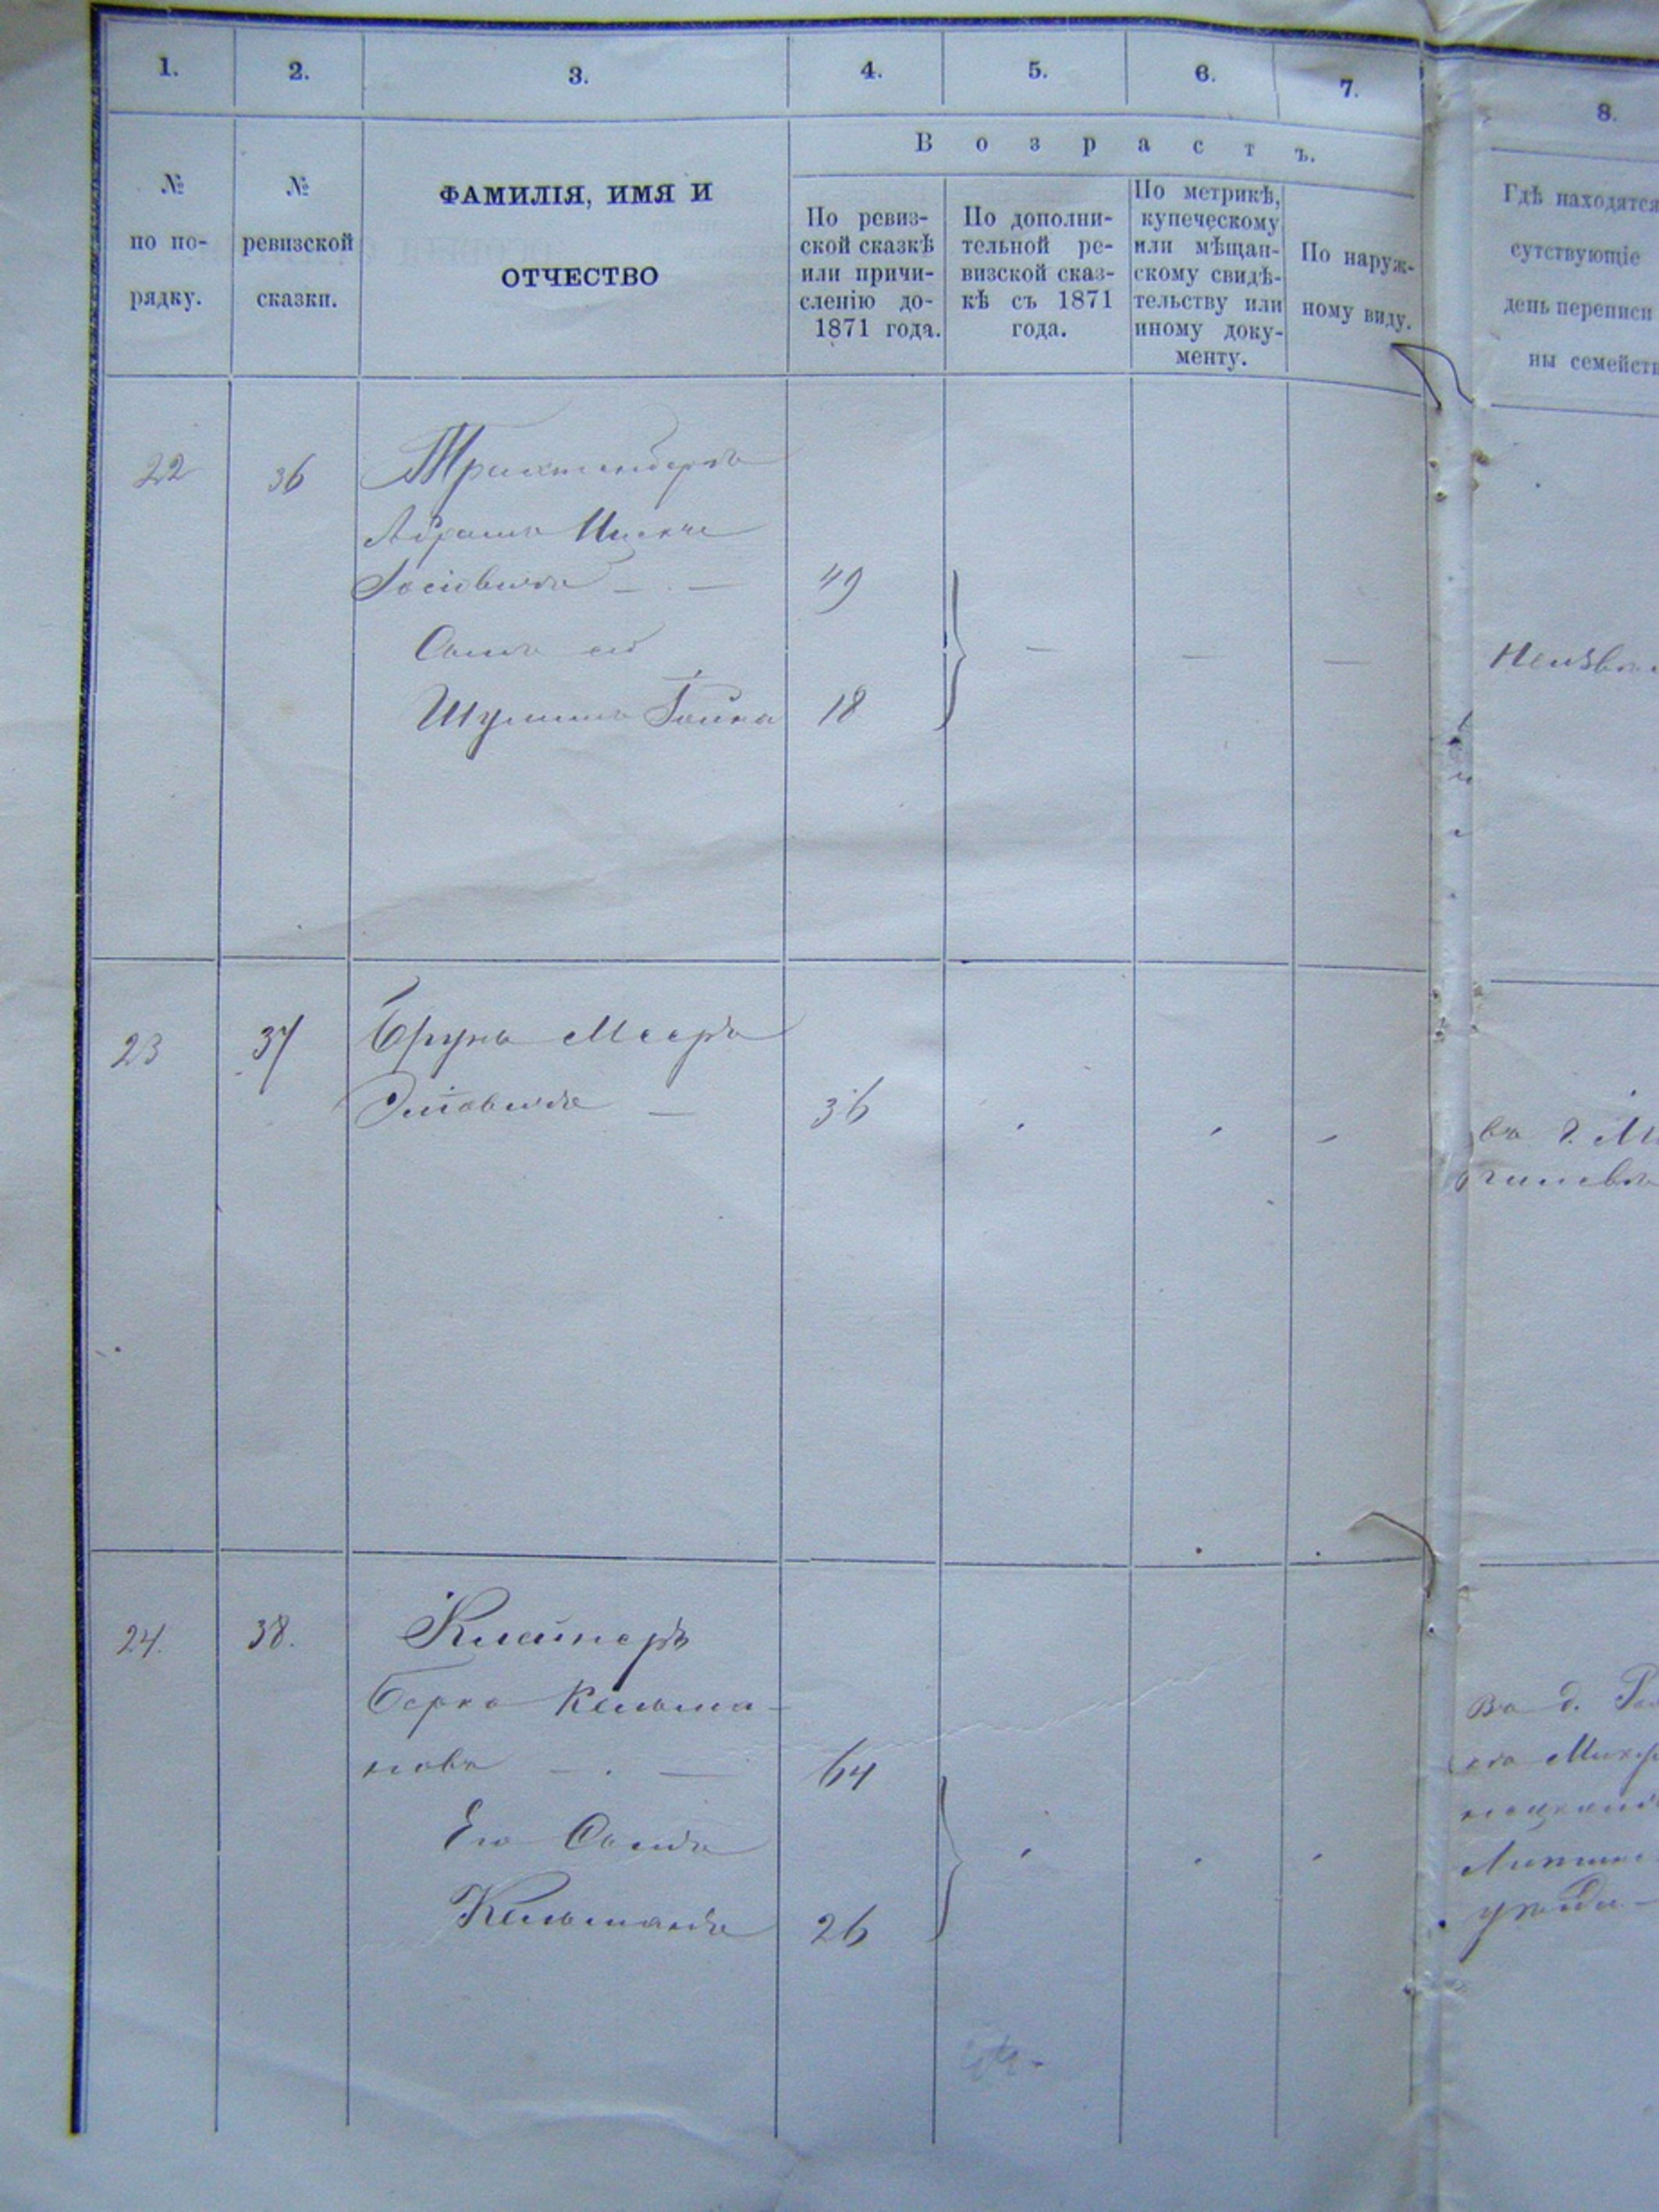 1. 2. 3. 4. 5. 6. 7. 8.
В о з р а с т ъ.
№ по по-
рядку.
№
ревизской
сказки.
ФАМИЛІЯ, ИМЯ И
ОТЧЕСТВО
По ревиз-
ской сказкѣ
или причи-
сленію до-
1871 года.
По дополни-
тельной ре-
визской сказ-
кѣ съ 1871
года.
По метрикѣ,
купеческому
или мѣщан-
скому свидѣ-
тельству или
иному доку-
менту.
По наруж-
ному виду.
Гдѣ находятся
сутствующіе
день переписи
ны семейств
22 36 Трихтенберъ
Абрамъ
Іосіовичъ — . — 49
Сынъ его
Шулимъ 18
23 37 Брунъ Мееръ
— 36
въ г. М
гилевѣ
24. 38. Клейнеръ
Берко Кельма-
новъ — . — 64
Его Сынъ
Кельманъ 26
въ д.